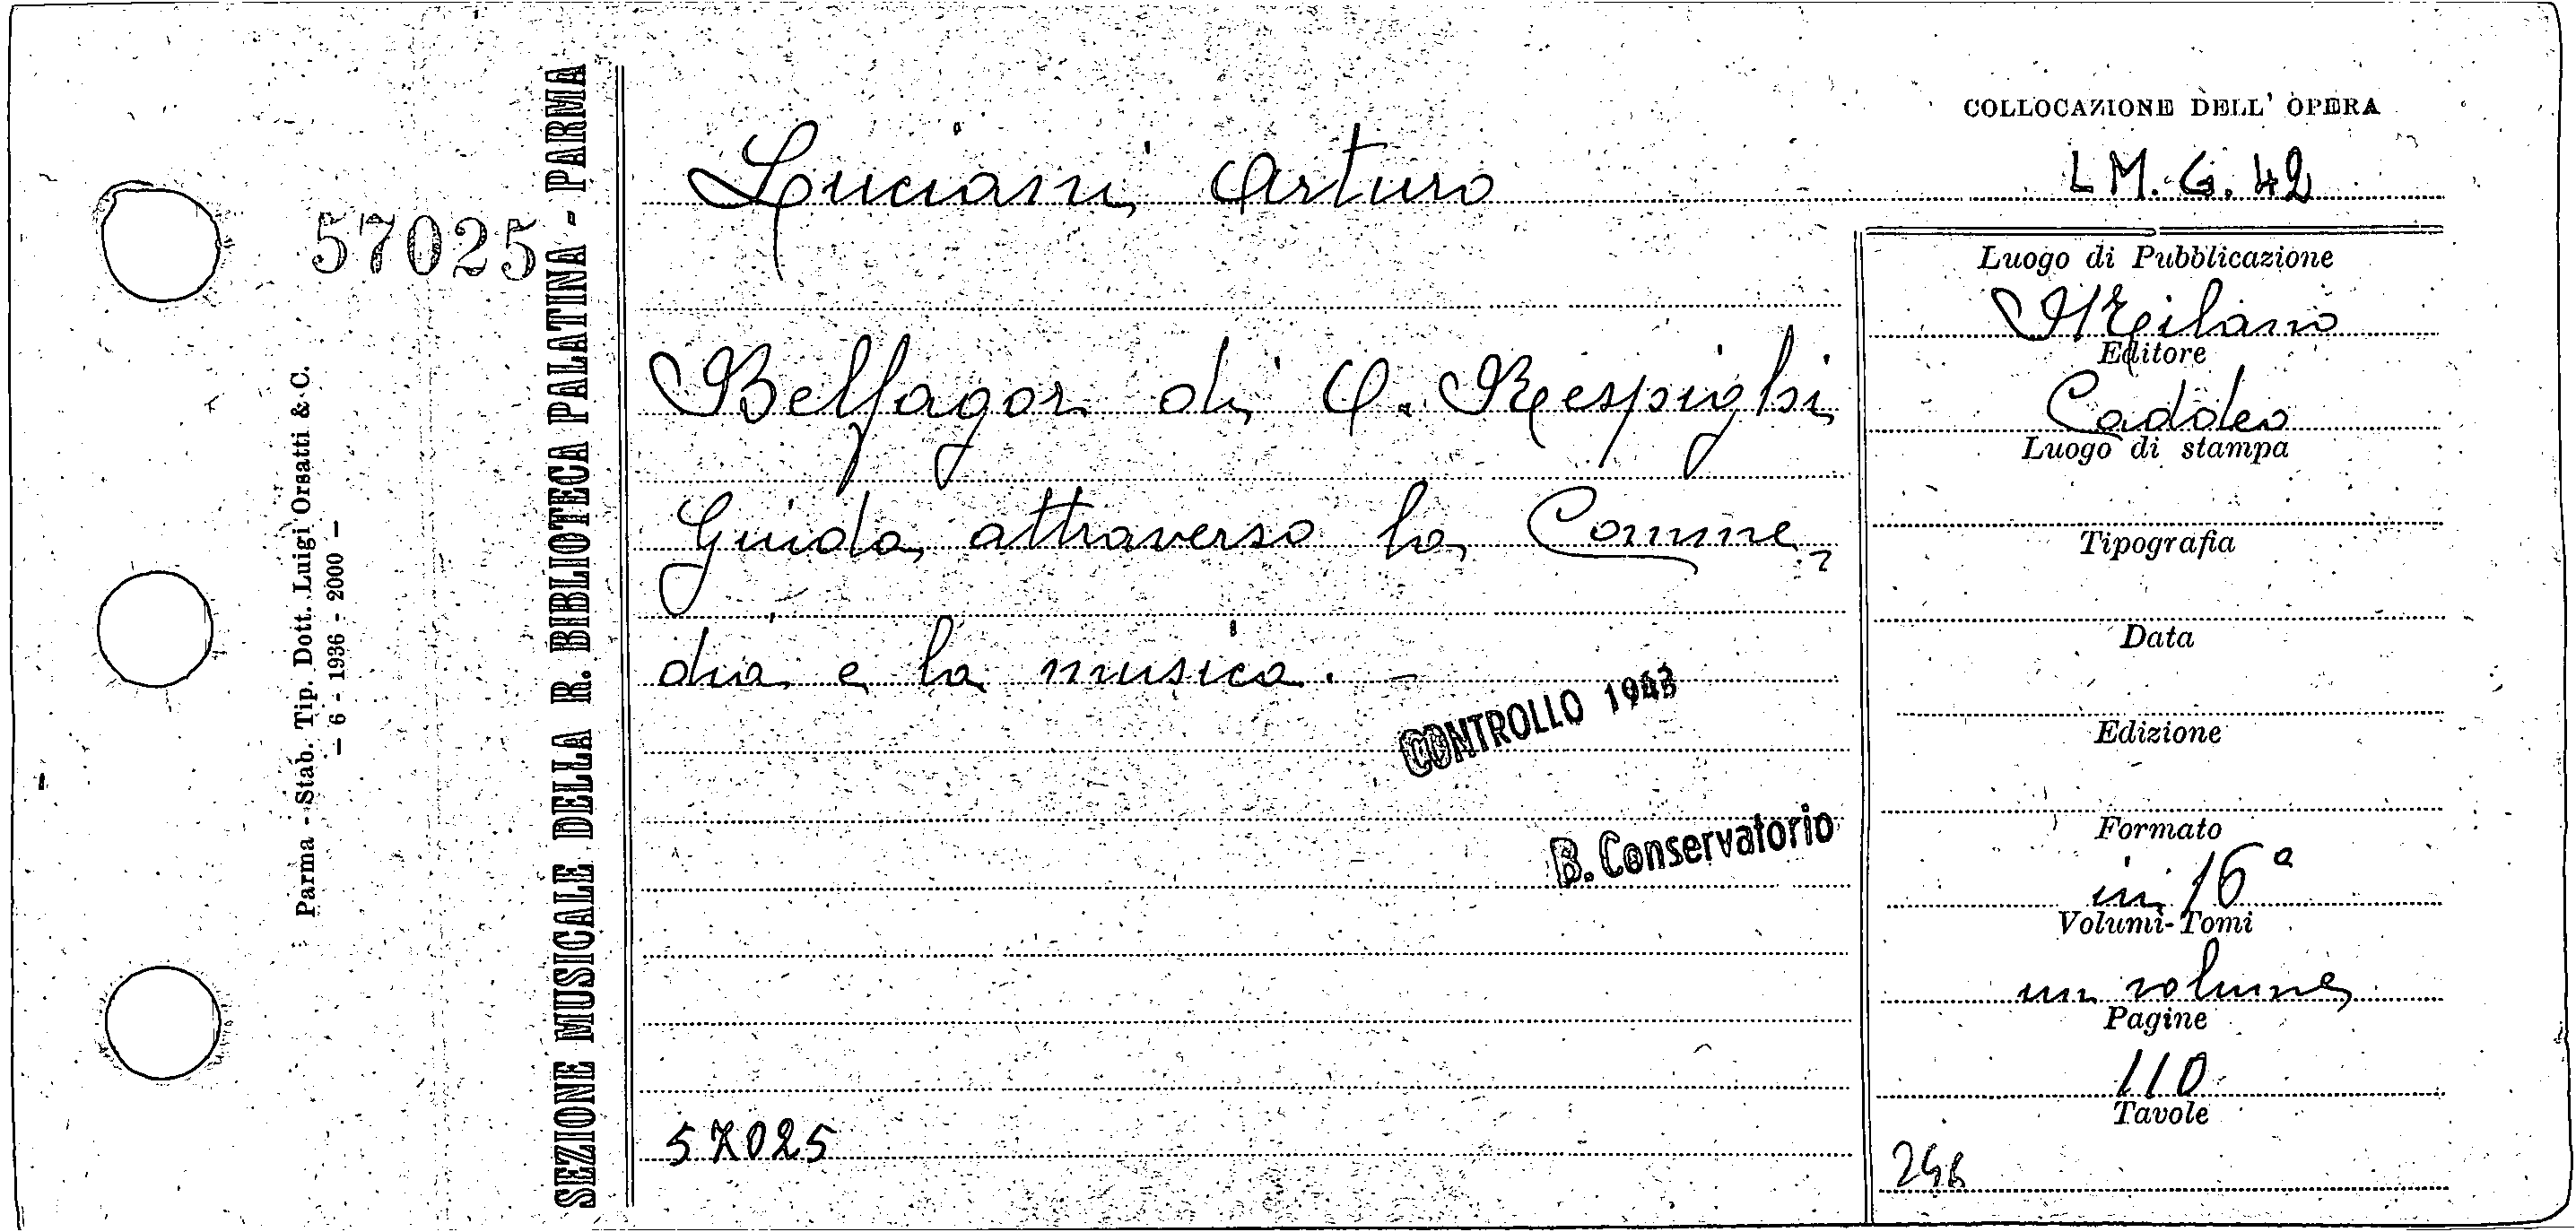 57025
Parma - Stab. Tip. Dott. Luigi Orsatti & C.
— 6 - 1936 - 2000 —
SEZIONE MUSICALE DELLA R. BIBLIOTECA PALATINA - PARMA
Luciani Arturo
Belfagor di O. Respighi
Guida attraverso la Comme,
dia e la musica. -
CONTROLLO 1943
B. Conservatorio
57025
COLLOCAZIONE DELL' OPERA
L M. G. 42
Luogo di Pubblicazione
Milano
Editore
Caddeo
Luogo di stampa
Tipografia
Data
Edizione
Formato
in 16°
Volumi-Tomi
un volume
Pagine
110
Tavole